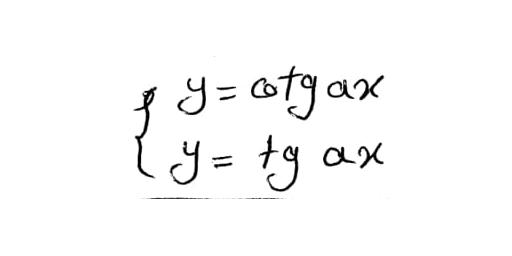 y = cotg ax
y = tg ax